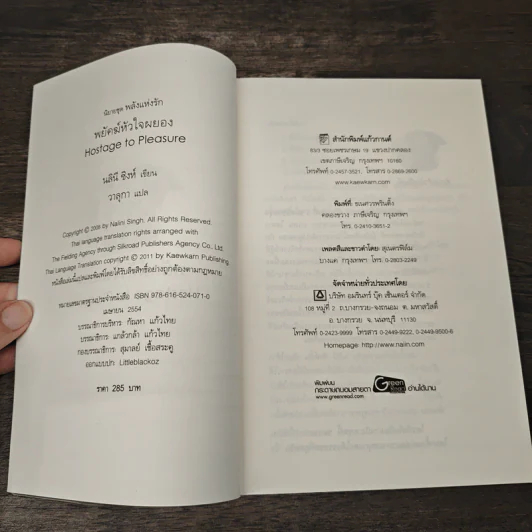 นิยายชุด พลังแห่งรัก
พยัคฆ์หัวใจผยอง
Hostage to Pleasure
นลินี ซิงห์ เขียน
วาลุกา แปล
Copyright © 2008 by Nalini Singh. All Rights Reserved.
Thai language translation rights arranged with
The Fielding Agency through Silkroad Publishers Agency Co., Ltd.
Thai Language Translation copyright © 2011 by Kaewkarn Publishing.
หนังสือเล่มนี้แปลและพิมพ์โดยได้รับลิขสิทธิ์อย่างถูกต้องตามกฎหมาย
หมายเลขมาตรฐานประจำหนังสือ ISBN 978-616-524-071-0
เมษายน 2554
บรรณาธิการบริหาร กัณหา แก้วไทย
บรรณาธิการ แกล้วกล้า แก้วไทย
กองบรรณาธิการ สุมาลย์ เชื้อสระคู
ออกแบบปก Littleblackoz
ราคา 285 บาท
สำนักพิมพ์แก้วกานต์
ซอยเพชรเกษม แขวงปากคลอง
เขตภาษีเจริญ กรุงเทพฯ 10160
โทรศัพท์ 0-2457-3521, โทรสาร
www.kaewkarn.com
พิมพ์ที่: ธนสารพริ้นติ้ง
คลองขวาง ภาษีเจริญ กรุงเทพฯ
โทร. 0-2410-3651-2
เพลตสีและขาวดำโดย: สุเนตรฟิล์ม
บางแค กรุงเทพฯ โทร 0-2803-2249
จัดจำหน่ายทั่วประเทศโดย
บริษัท อมรินทร์ บุ๊ค เซ็นเตอร์ จำกัด
108 หมู่ที่ 2 ถ.บางกรวย-จงถนอม ต. มหาสวัสดิ์
อ. บางกรวย จ. นนทบุรี 11130
โทรศัพท์ 0-2423-9999 โทรสาร 0-2449-9222, 0-2449-9500-6
Homepage: http://www.naiin.com
พิมพ์บน
กระดาษถนอมสายตา Green Read อ่านได้นาน
www.greenread.com